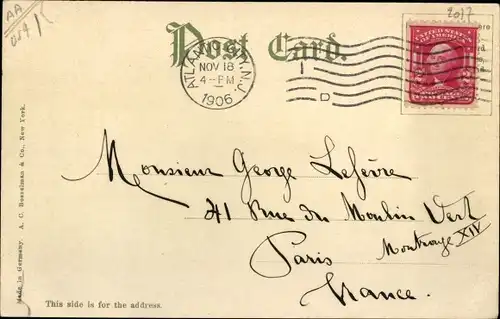 AA
2017
Post Card.
ATLANTIC CITY, N.J.
NOV 18
4-PM
1906
D
UNITED STATES
OF AMERICA
Monsieur George Lefèvre
41 Rue du Moulin Vert
Montrouge XIV
Paris
France.
Made in Germany. A. C. Bosselman & Co., New York.
This side is for the address.